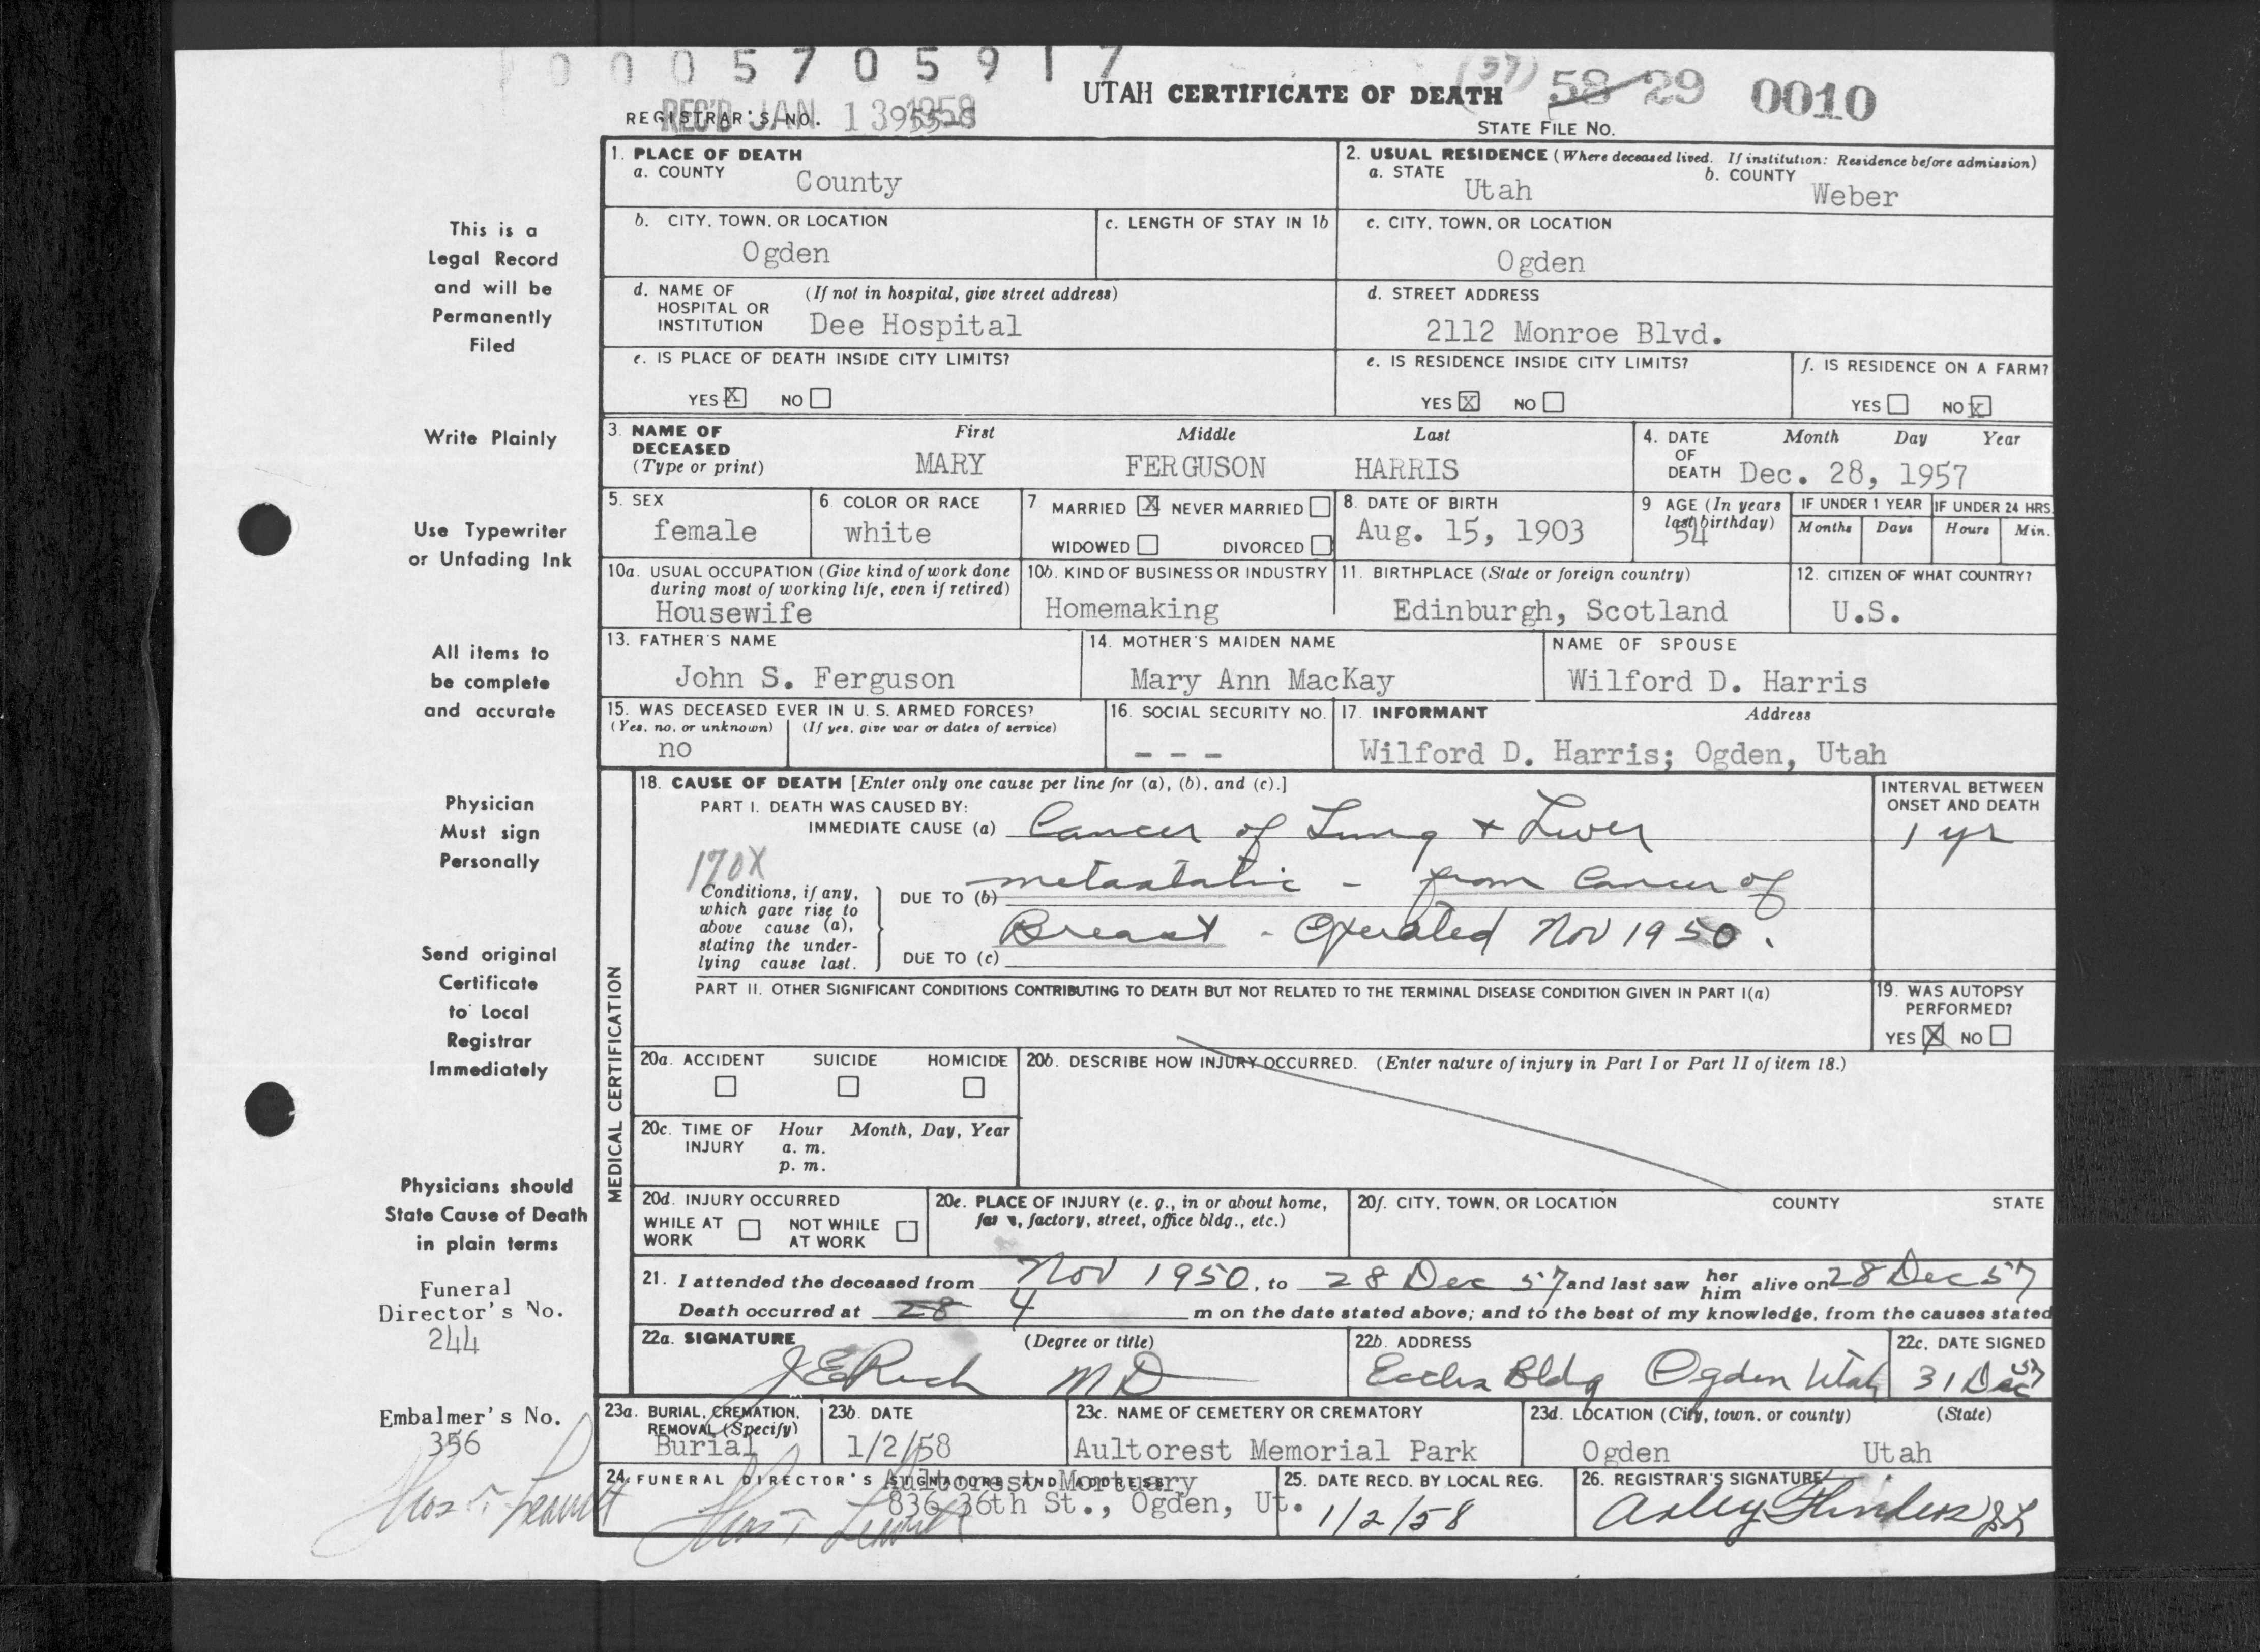 0 0 0 5 7 0 5 9 1 7
UTAH CERTIFICATE OF DEATH (57) 58 29 0010
REGISTRAR'S NO. REC'D JAN 13 1958
STATE FILE NO.
1. PLACE OF DEATH
a. COUNTY County
2. USUAL RESIDENCE (Where deceased lived. If institution: Residence before admission)
a. STATE Utah b. COUNTY Weber
b. CITY, TOWN, OR LOCATION Ogden
c. LENGTH OF STAY IN 1b
c. CITY, TOWN, OR LOCATION Ogden
d. NAME OF HOSPITAL OR INSTITUTION (If not in hospital, give street address) Dee Hospital
d. STREET ADDRESS 2112 Monroe Blvd.
e. IS PLACE OF DEATH INSIDE CITY LIMITS?
YES X NO
e. IS RESIDENCE INSIDE CITY LIMITS?
YES X NO
f. IS RESIDENCE ON A FARM?
YES NO X
3. NAME OF DECEASED (Type or print) First Middle Last
MARY FERGUSON HARRIS
4. DATE OF DEATH Month Day Year
Dec. 28, 1957
5. SEX female
6. COLOR OR RACE white
7. MARRIED X NEVER MARRIED
WIDOWED DIVORCED
8. DATE OF BIRTH Aug. 15, 1903
9. AGE (In years last birthday) 54
IF UNDER 1 YEAR Months Days
IF UNDER 24 HRS. Hours Min.
10a. USUAL OCCUPATION (Give kind of work done during most of working life, even if retired)
Housewife
10b. KIND OF BUSINESS OR INDUSTRY Homemaking
11. BIRTHPLACE (State or foreign country) Edinburgh, Scotland
12. CITIZEN OF WHAT COUNTRY? U.S.
13. FATHER'S NAME John S. Ferguson
14. MOTHER'S MAIDEN NAME Mary Ann MacKay
NAME OF SPOUSE Wilford D. Harris
15. WAS DECEASED EVER IN U. S. ARMED FORCES?
(Yes, no, or unknown) (If yes, give war or dates of service)
no
16. SOCIAL SECURITY NO. - - -
17. INFORMANT Address
Wilford D. Harris; Ogden, Utah
MEDICAL CERTIFICATION
18. CAUSE OF DEATH [Enter only one cause per line for (a), (b), and (c).]
INTERVAL BETWEEN ONSET AND DEATH
PART I. DEATH WAS CAUSED BY:
IMMEDIATE CAUSE (a) Cancer of Lung + Liver 1 yr
170X
Conditions, if any, which gave rise to above cause (a), stating the underlying cause last.
DUE TO (b) metastatic - from Cancer of
Breast - Operated Nov 1950.
DUE TO (c)
PART II. OTHER SIGNIFICANT CONDITIONS CONTRIBUTING TO DEATH BUT NOT RELATED TO THE TERMINAL DISEASE CONDITION GIVEN IN PART I(a)
19. WAS AUTOPSY PERFORMED?
YES X NO
20a. ACCIDENT SUICIDE HOMICIDE
20b. DESCRIBE HOW INJURY OCCURRED. (Enter nature of injury in Part I or Part II of item 18.)
20c. TIME OF INJURY Hour a. m. p. m. Month, Day, Year
20d. INJURY OCCURRED
WHILE AT WORK NOT WHILE AT WORK
20e. PLACE OF INJURY (e. g., in or about home, farm, factory, street, office bldg., etc.)
20f. CITY, TOWN, OR LOCATION COUNTY STATE
21. I attended the deceased from Nov 1950, to 28 Dec 57 and last saw her him alive on 28 Dec 57
Death occurred at 28 4 m on the date stated above; and to the best of my knowledge, from the causes stated
22a. SIGNATURE (Degree or title)
J E Rich M D
22b. ADDRESS Eccles Bldg Ogden Utah
22c. DATE SIGNED 31 Dec 57
23a. BURIAL, CREMATION, REMOVAL (Specify) Burial
23b. DATE 1/2/58
23c. NAME OF CEMETERY OR CREMATORY Aultorest Memorial Park
23d. LOCATION (City, town, or county) (State)
Ogden Utah
24. FUNERAL DIRECTOR'S SIGNATURE AND ADDRESS
Aultorest Mortuary
836 36th St., Ogden, Ut.
25. DATE RECD. BY LOCAL REG. 1/2/58
26. REGISTRAR'S SIGNATURE
This is a
Legal Record
and will be
Permanently
Filed
Write Plainly
Use Typewriter
or Unfading Ink
All items to
be complete
and accurate
Physician
Must sign
Personally
Send original
Certificate
to Local
Registrar
Immediately
Physicians should
State Cause of Death
in plain terms
Funeral
Director's No.
244
Embalmer's No.
356